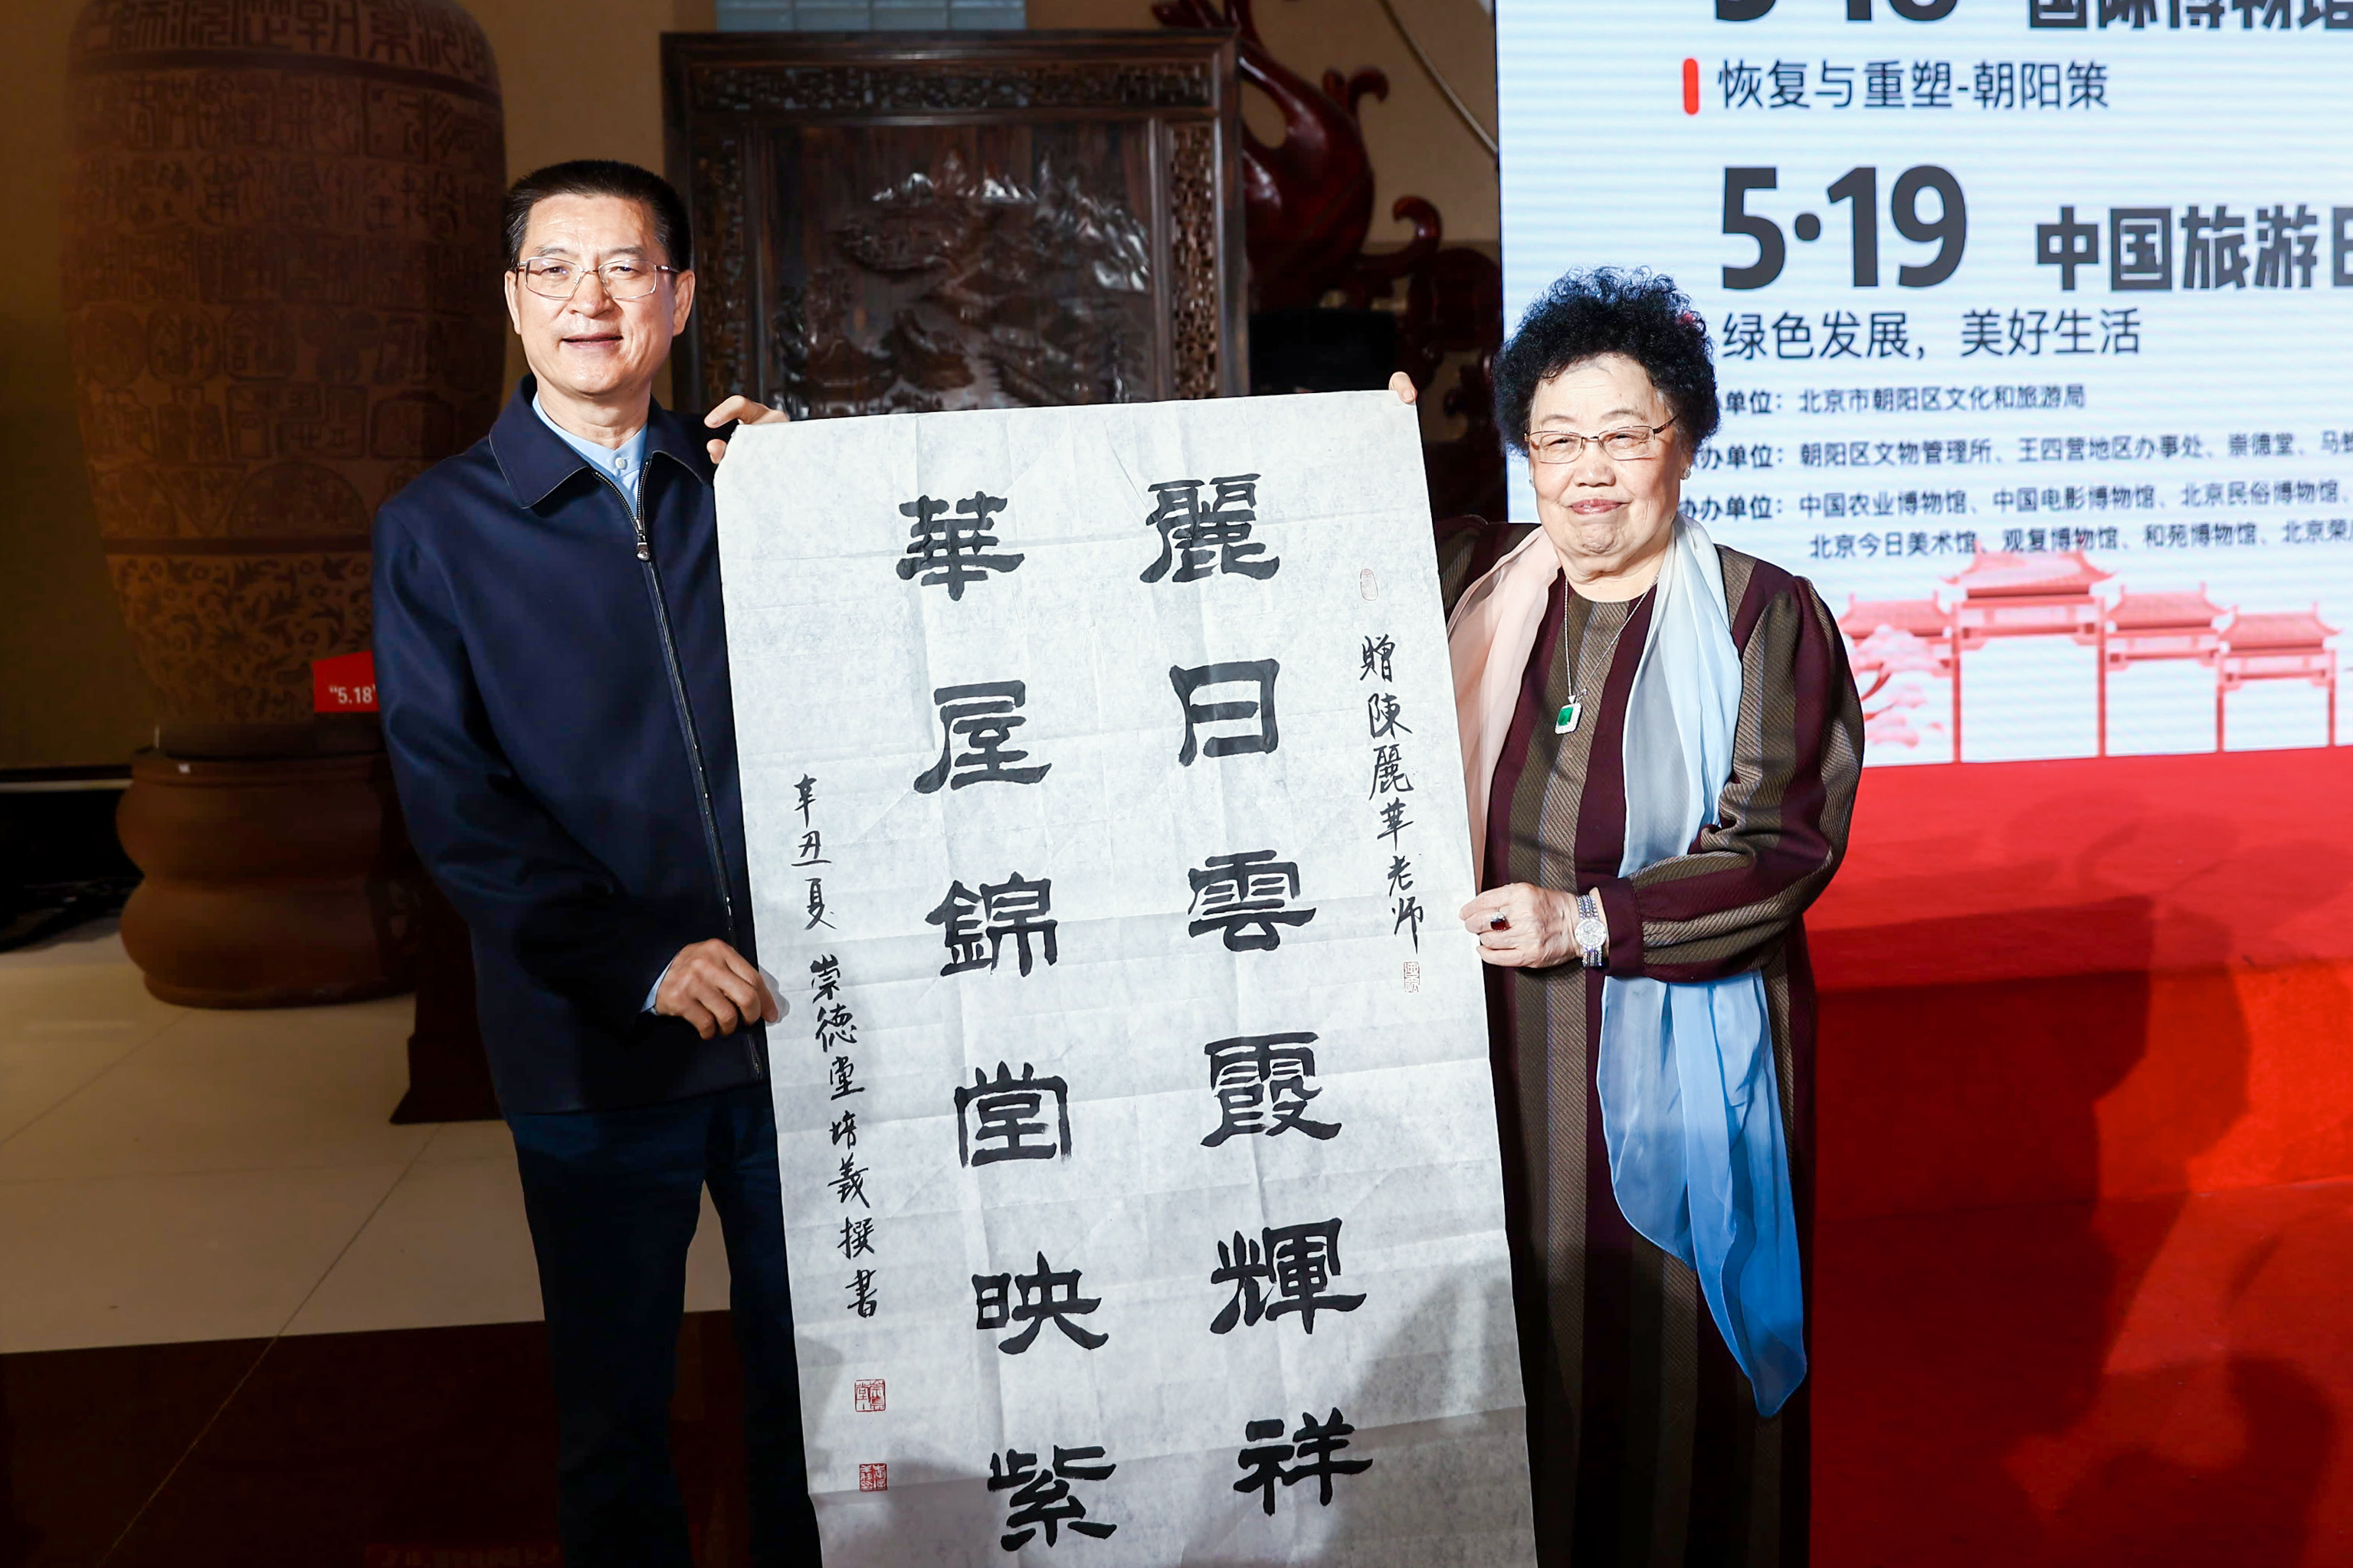 国际博物馆
恢复与重塑-朝阳策
5·19 中国旅游日
绿色发展，美好生活
单位：北京市朝阳区文化和旅游局
办单位：朝阳区文物管理所、王四营地区办事处、崇德堂、
协办单位：中国农业博物馆、中国电影博物馆、北京民俗博物馆、
北京今日美术馆、观复博物馆、和苑博物馆、北京荣
贈陳麗華老师
麗日雲霞輝祥
華屋錦堂映紫
辛丑夏 崇德堂 培義撰書
“5.18”